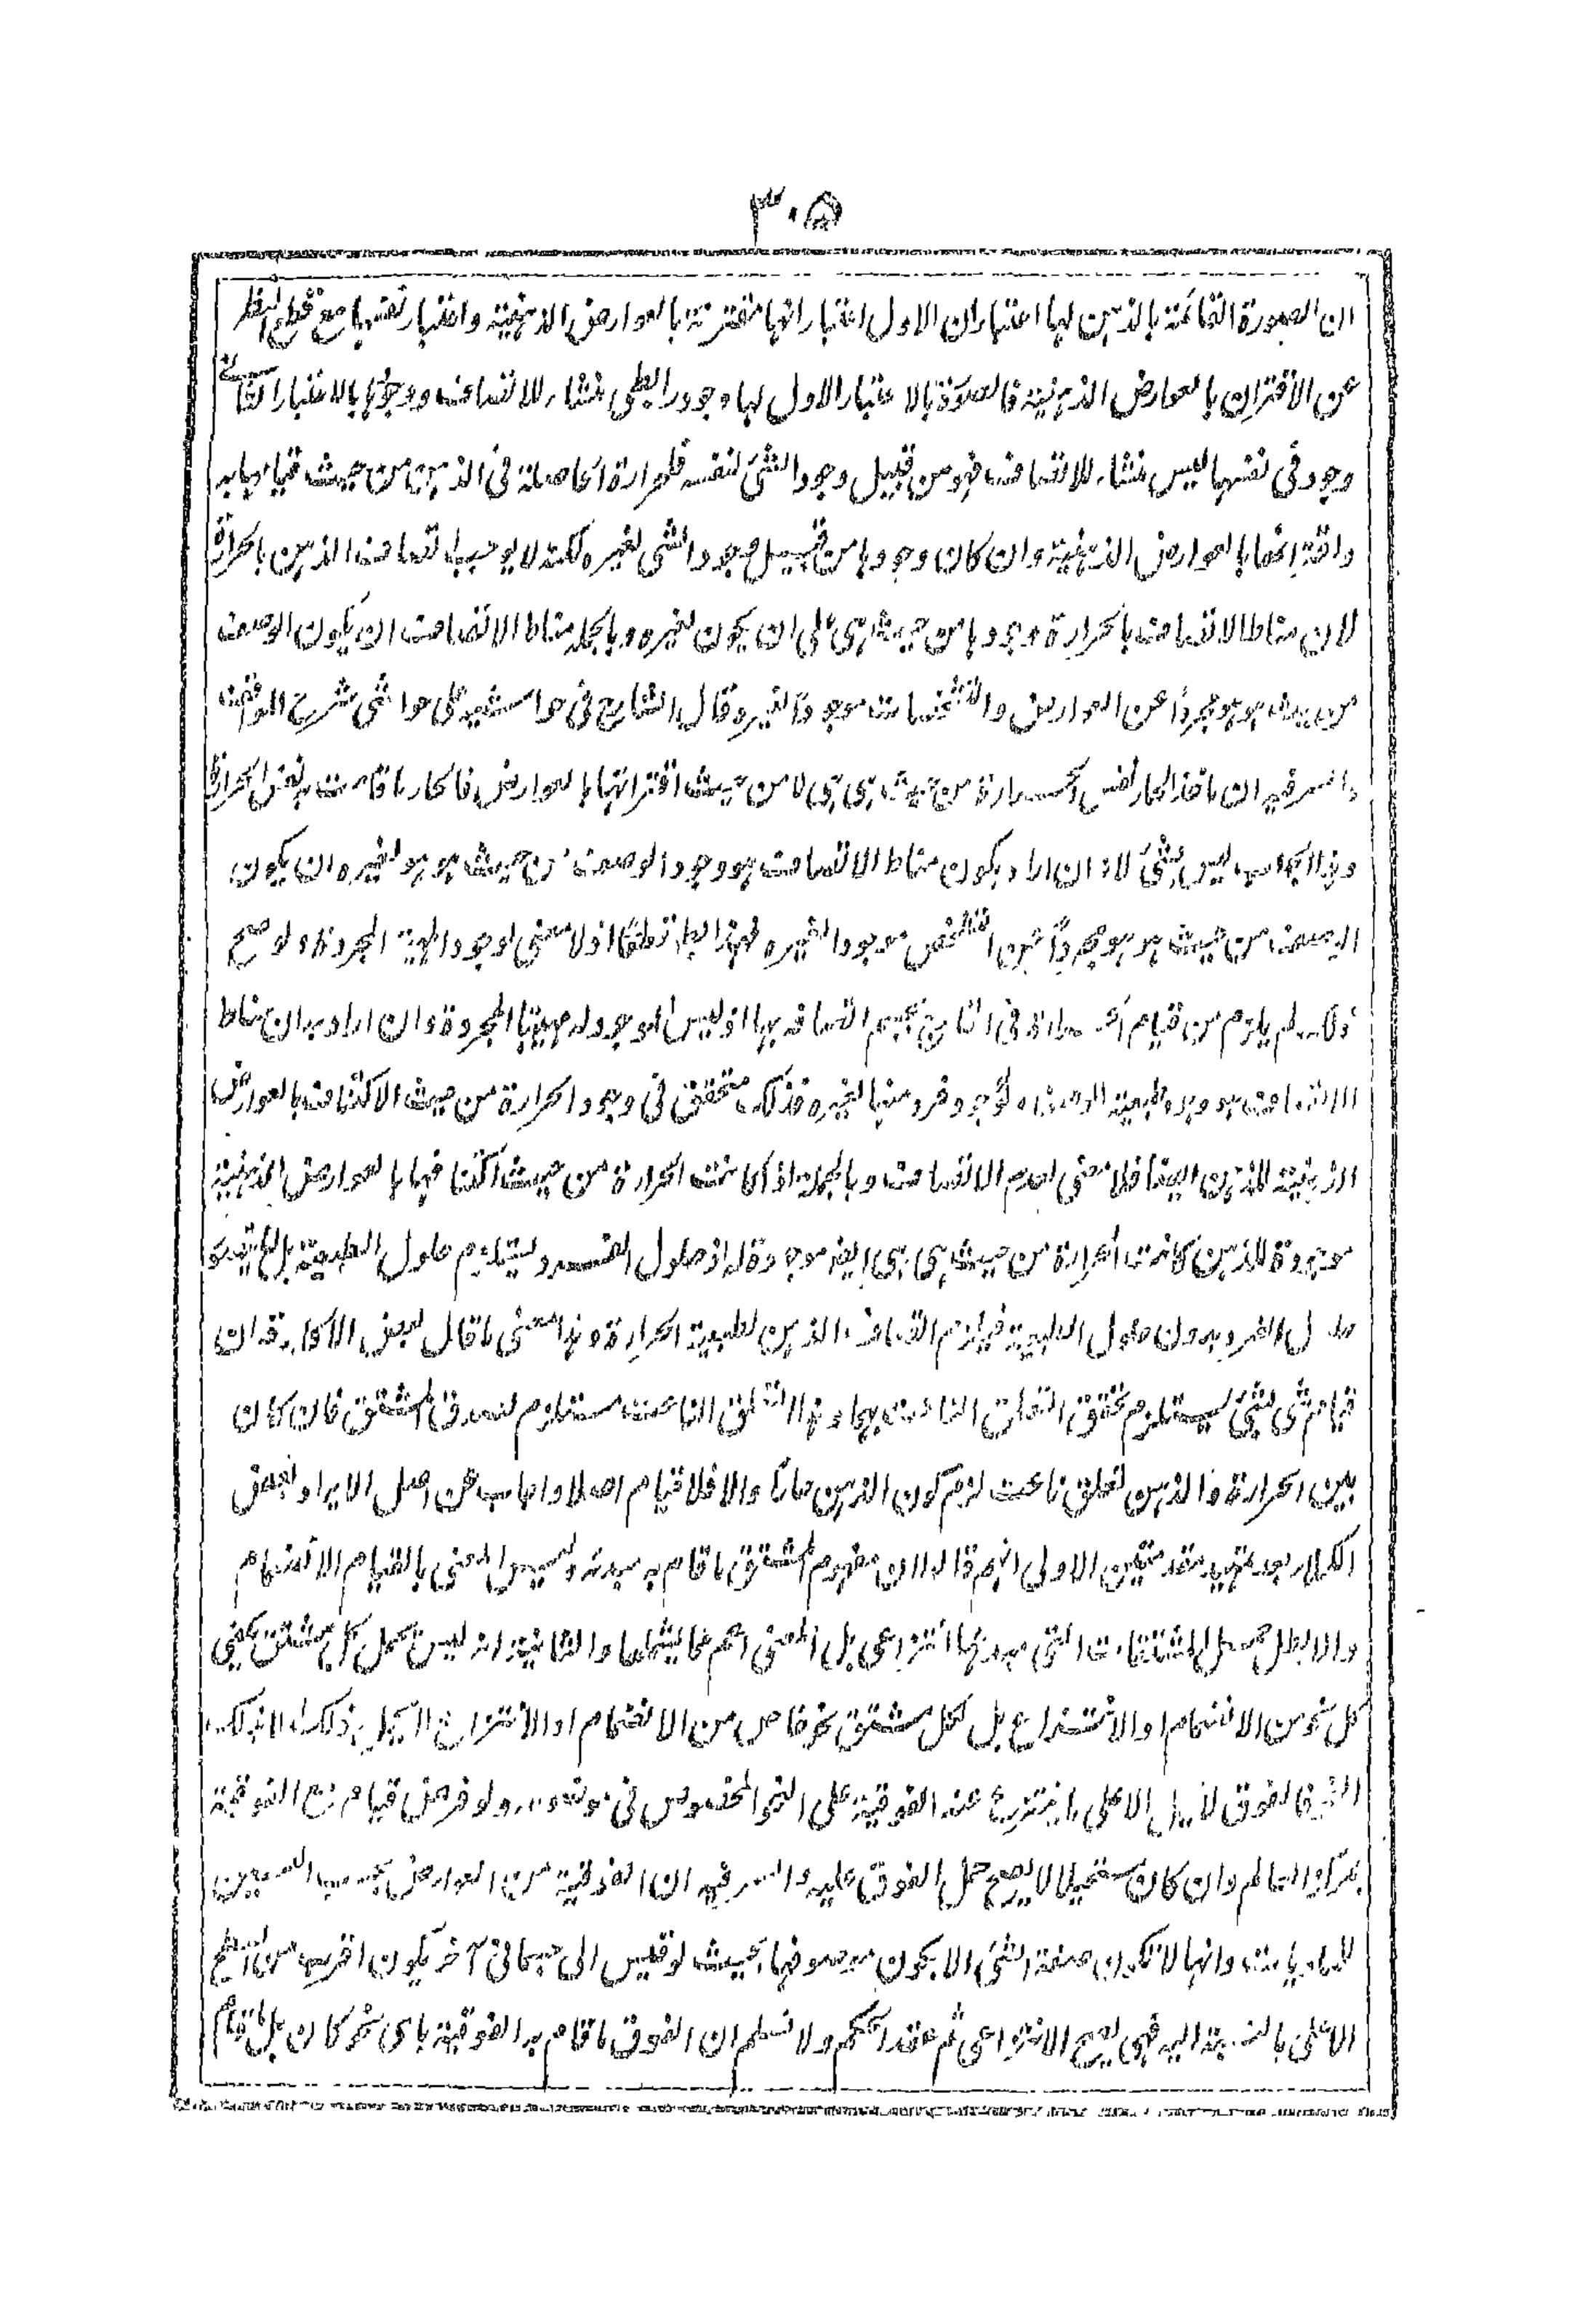 ٣٠٥
ان الصورة القائمة بالذهن لها اعتباران الاول اعتبار انها مقترنة بالعوارض الذهنية واعتبار نفسها مع قطع النظر
عن الاقتران بالعوارض الذهنية فالصورة بالاعتبار الاول لها وجود رابطى منشاء للاتصاف ووجودها بالاعتبار الثانى
وجود فى نفسها ليس منشاء للاتصاف فهو من قبيل وجود الشئ لنفسه فالحرارة الحاصلة فى الذهن من حيث قيامها به
واقترانها بالعوارض الذهنية وان كان وجودها من قبيل وجود الشى لغيره لكنه لا يوجب اتصاف الذهن بالحرارة
لان مناط الاتصاف بالحرارة وجودها من حيث هى هى على ان يكون لغيره وبالجملة مناط الاتصاف ان يكون الوصف
من حيث هو هو مجردا عن العوارض والتشخصات موجودا لغيره وقال الشارح فى حواشيه على حواشى شرح المواقف
والسر فيه ان ماخذ الحار نفس الحرارة من حيث هى هى لا من حيث اقترانها بالعوارض فالحار ما قامت به نفس الحرارة
وهذا الجواب ليس بشئ لانه ان اراد بكون مناط الاتصاف هو وجود الوصف من حيث هو هو لغيره ان يكون
الوصف من حيث هو هو مجردا عن التشخص موجودا لغيره فهذا باطل قطعا اذ لا معنى لوجود المهية المجردة ولو صح
ذلك لم يلزم من قيام الحرارة فى الخارج بجسم اتصافه بها اذ ليس الموجود له مهيتها المجردة وان اراد به ان مناط
الاتصاف هو وجود طبيعة الوصف لوجود فرد منها لغيره فذلك متحقق فى وجود الحرارة من حيث الاكتناف بالعوارض
الذهنية للذهن ايضا فلا معنى لعدم الاتصاف وبالجملة اذا كانت الحرارة من حيث اكتنافها بالعوارض الذهنية
موجودة للذهن كانت الحرارة من حيث هى هى ايضا موجودة له اذ حلول الفرد يستلزم حلول الطبيعة بل لا يتصور
حلول الفرد بدون حلول الطبيعة فيلزم اتصاف الذهن لطبيعة الحرارة وهذا معنى ما قال بعض الاكابر قه ان
قيام شى بشئ يستلزم تحقق التعلق الناعت بهما وهذا التعلق الناعت مستلزم لصدق المشتق فان كان
بين الحرارة والذهن تعلق ناعت لزم كون الذهن حارا والا فلا قيام اصلا واجاب عن اصل الايراد بعض
الكملاء بعد تمهيد مقدمتين الاولى انهم قالوا ان مفهوم المشتق ما قام به مبدئه وليس المعنى بالقيام الانضمام
والا بطل حمل المشتقات التى مبدؤها انتزاعى بل المعنى اعم مما يشملهما والثانية انه ليس بحمل كل مشتق يكفى
كل نحو من الانضمام او الانتزاع بل لكل مشتق نحو خاص من الانضمام او الانتزاع اذ يحمل بذلك لا بذلك
الاخر فالفوق لا يحمل الا على ما ينتزع عنه الفوقية على النحو المخصوص فى موضوعه ولو فرض قيام نوع الفوقية
بمجرد العالم وان كان مستحيلا لا يصح حمل الفوق عليه والسر فيه ان الفوقية من العوارض بحسب العين
للماديات وانها لا تكون صفة لشئ الا بكون موصوفها بحيث لو قيس الى جسمانى آخر يكون اقرب من السطح
الاعلى بالنسبة اليه فهى يصح الانتزاعى ثم عقد الحكم ولا نسلم ان الفوق ما قام به الفوقية باى نحو كان بل ما قام